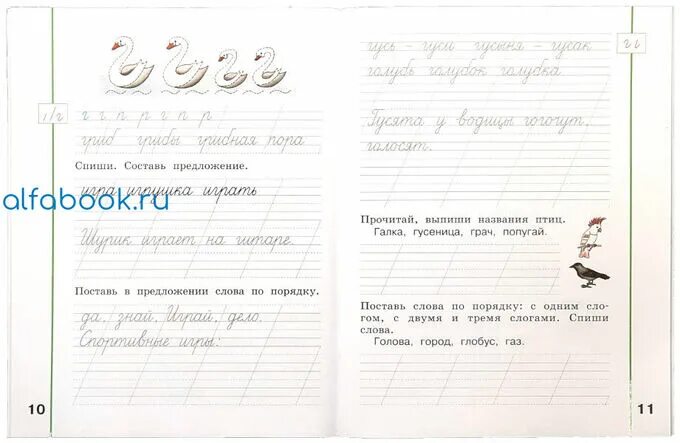 г г п р г п р
гриб грибы грибная пора
Спиши. Составь предложение.
игра игрушка играть
alfabook.ru
Шурик играет на гитаре.
Поставь в предложении слова по порядку.
да, знай, Играй, дело.
Спортивные игры:
10
гусь – гуси гусыня – гусак
голубь голубок голубка
Гусята у водицы гогочут,
голосят.
Прочитай, выпиши названия птиц.
Галка, гусеница, грач, попугай.
Поставь слова по порядку: с одним сло-
гом, с двумя и тремя слогами. Спиши
слова.
Голова, город, глобус, газ.
11